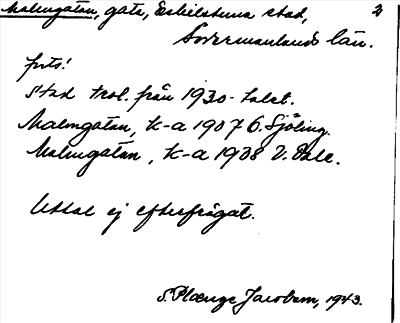 Malmgatan, gata, Eskilstuna stad, 2
Södermanlands län.
forts!
Stad trol. från 1930-talet.
Malmgatan, k-a 1907 G. Sjöling.
Malmgatan, k-a 1938 V. Dale.
Uttal ej efterfrågat.
S. Plænge Jacobson, 1943.